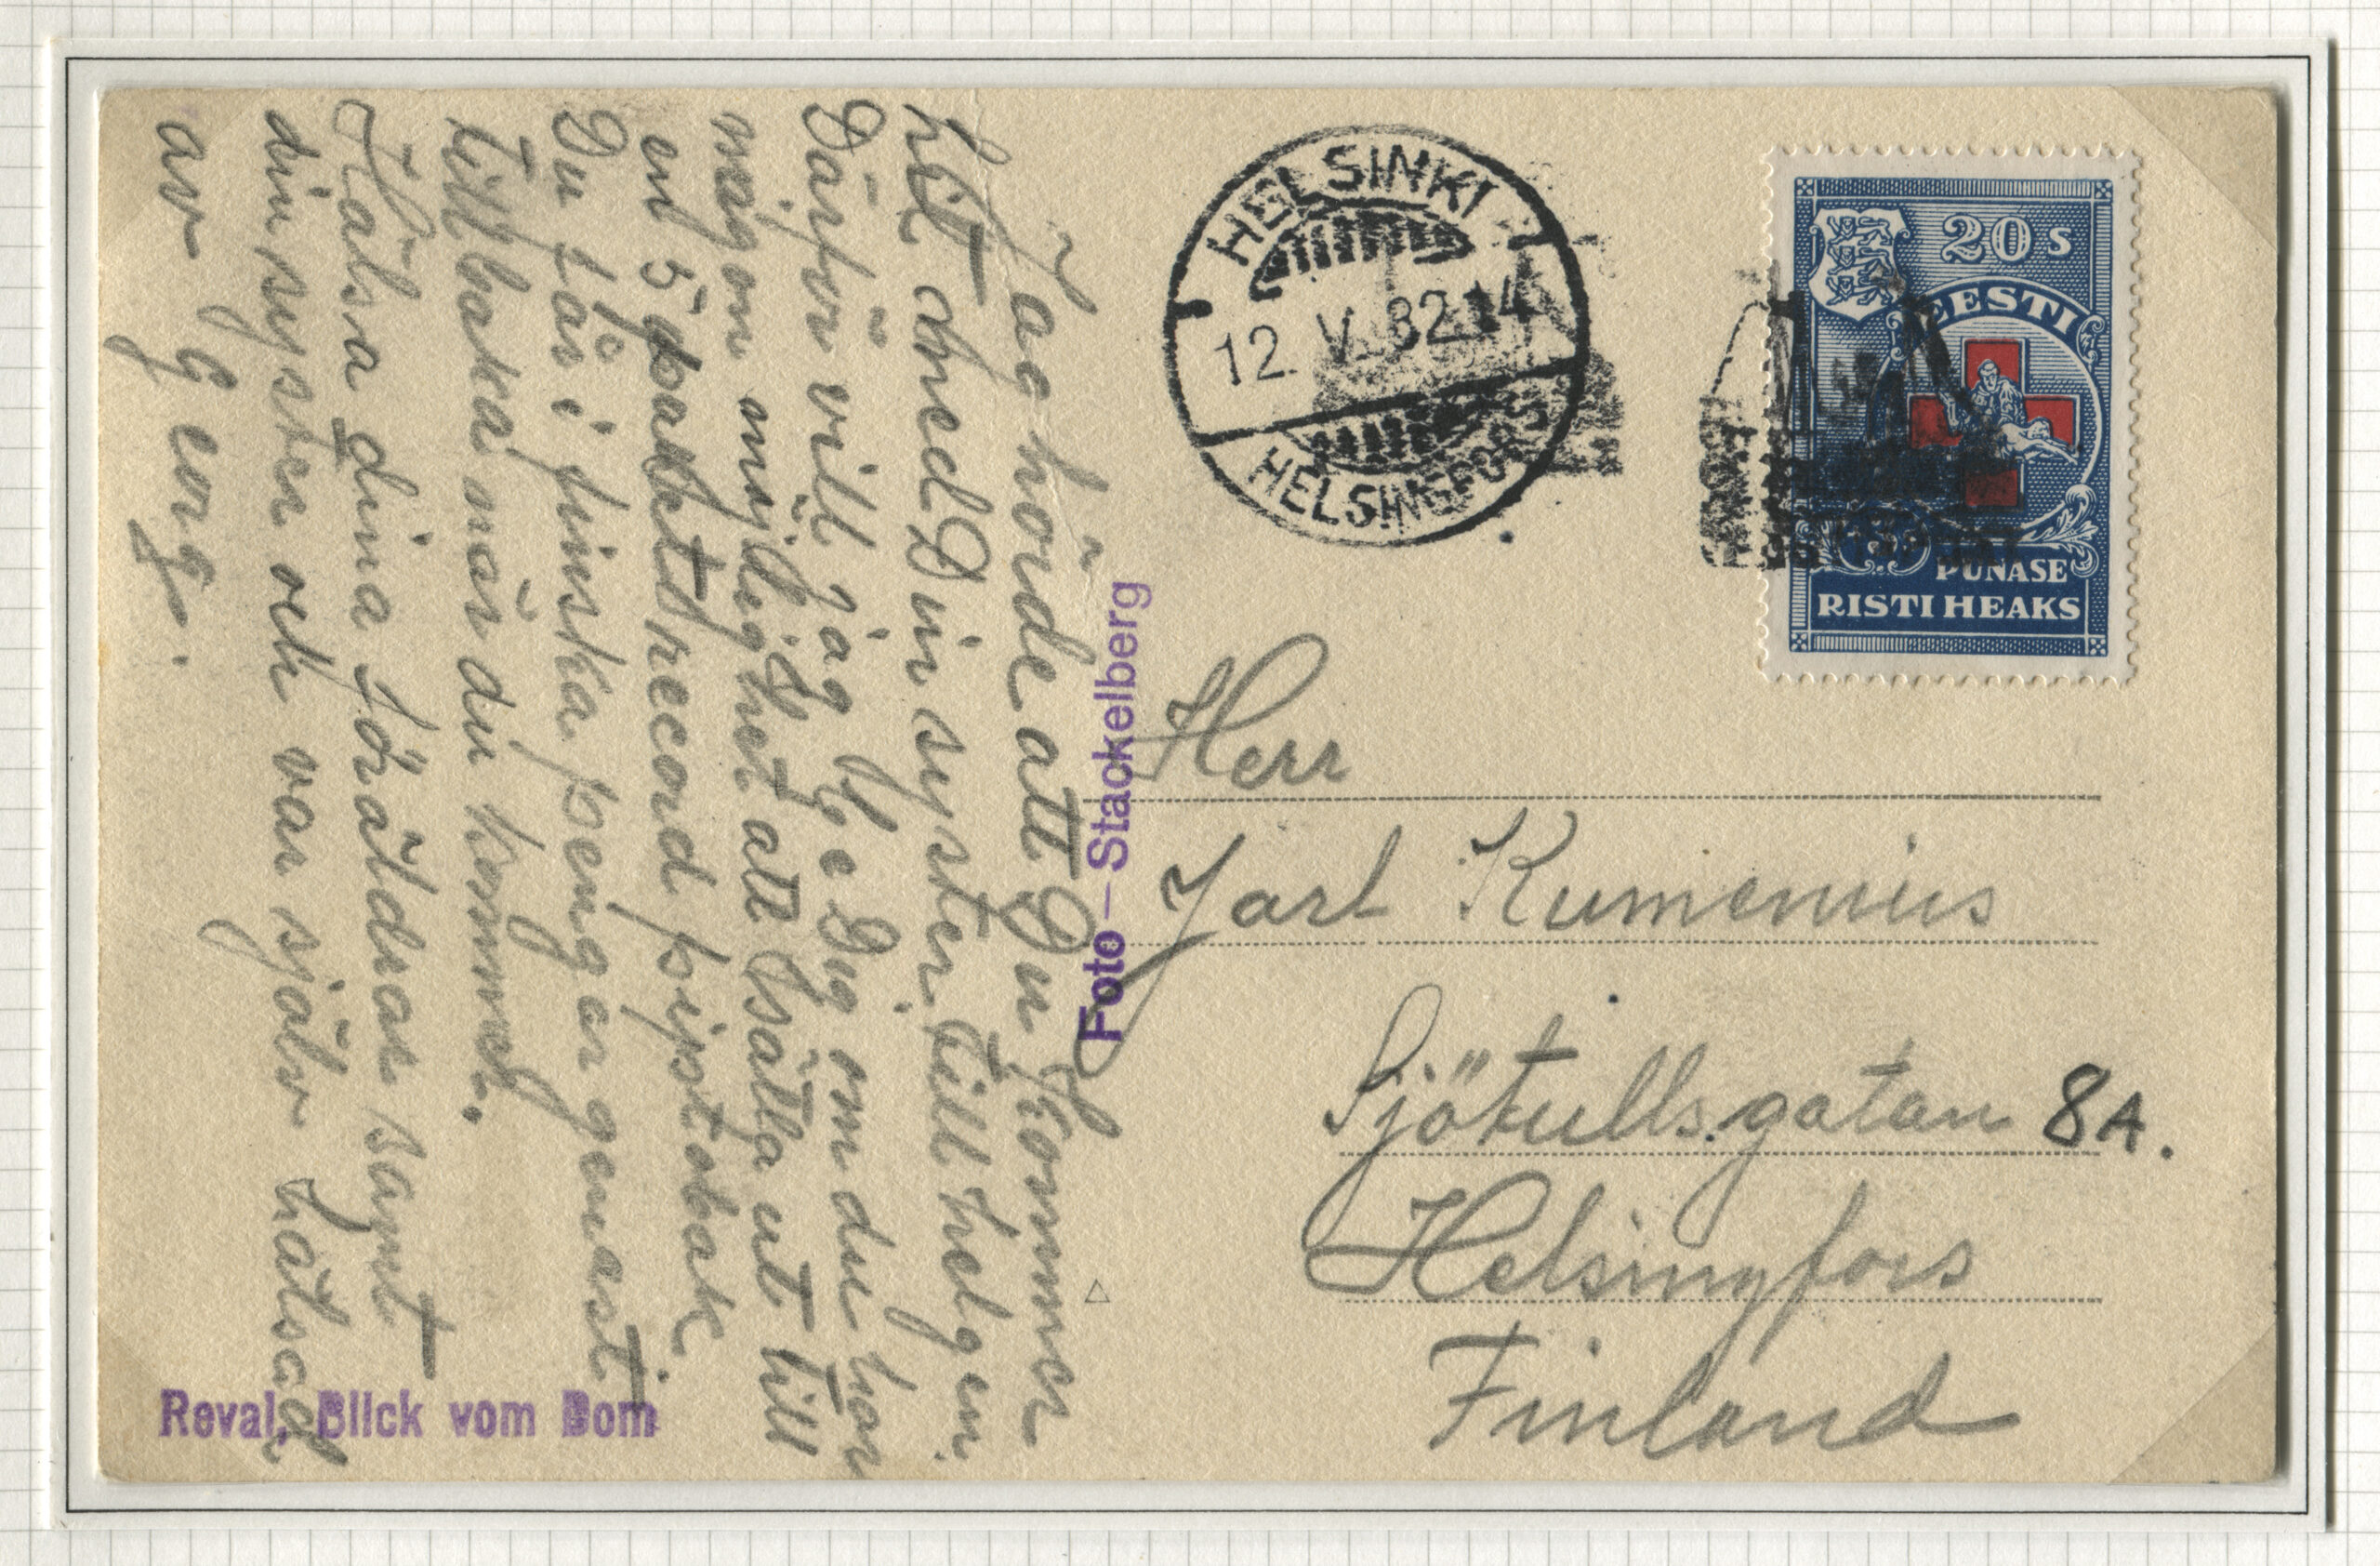 HELSINKI
12. V. 32.14
HELSINGFORS
20 s
EESTI
PUNASE
RISTI HEAKS
Herr
Jarl Rumenius
Sjötullsgatan 8A.
Helsingfors
Finland
Foto — Stackelberg
Jag hörde att Du kommer
hit med Din syster till helgen.
Därför vill jag be Dig om du har
någon möjlighet att sälja ut till
en 5 pakets record piptobak
Du får i finska pengar genast
tillbaka när du kommer.
Hälsa dina föräldrar samt
din syster och var själv hälsad
av Georg.
Reval, Blick vom Dom